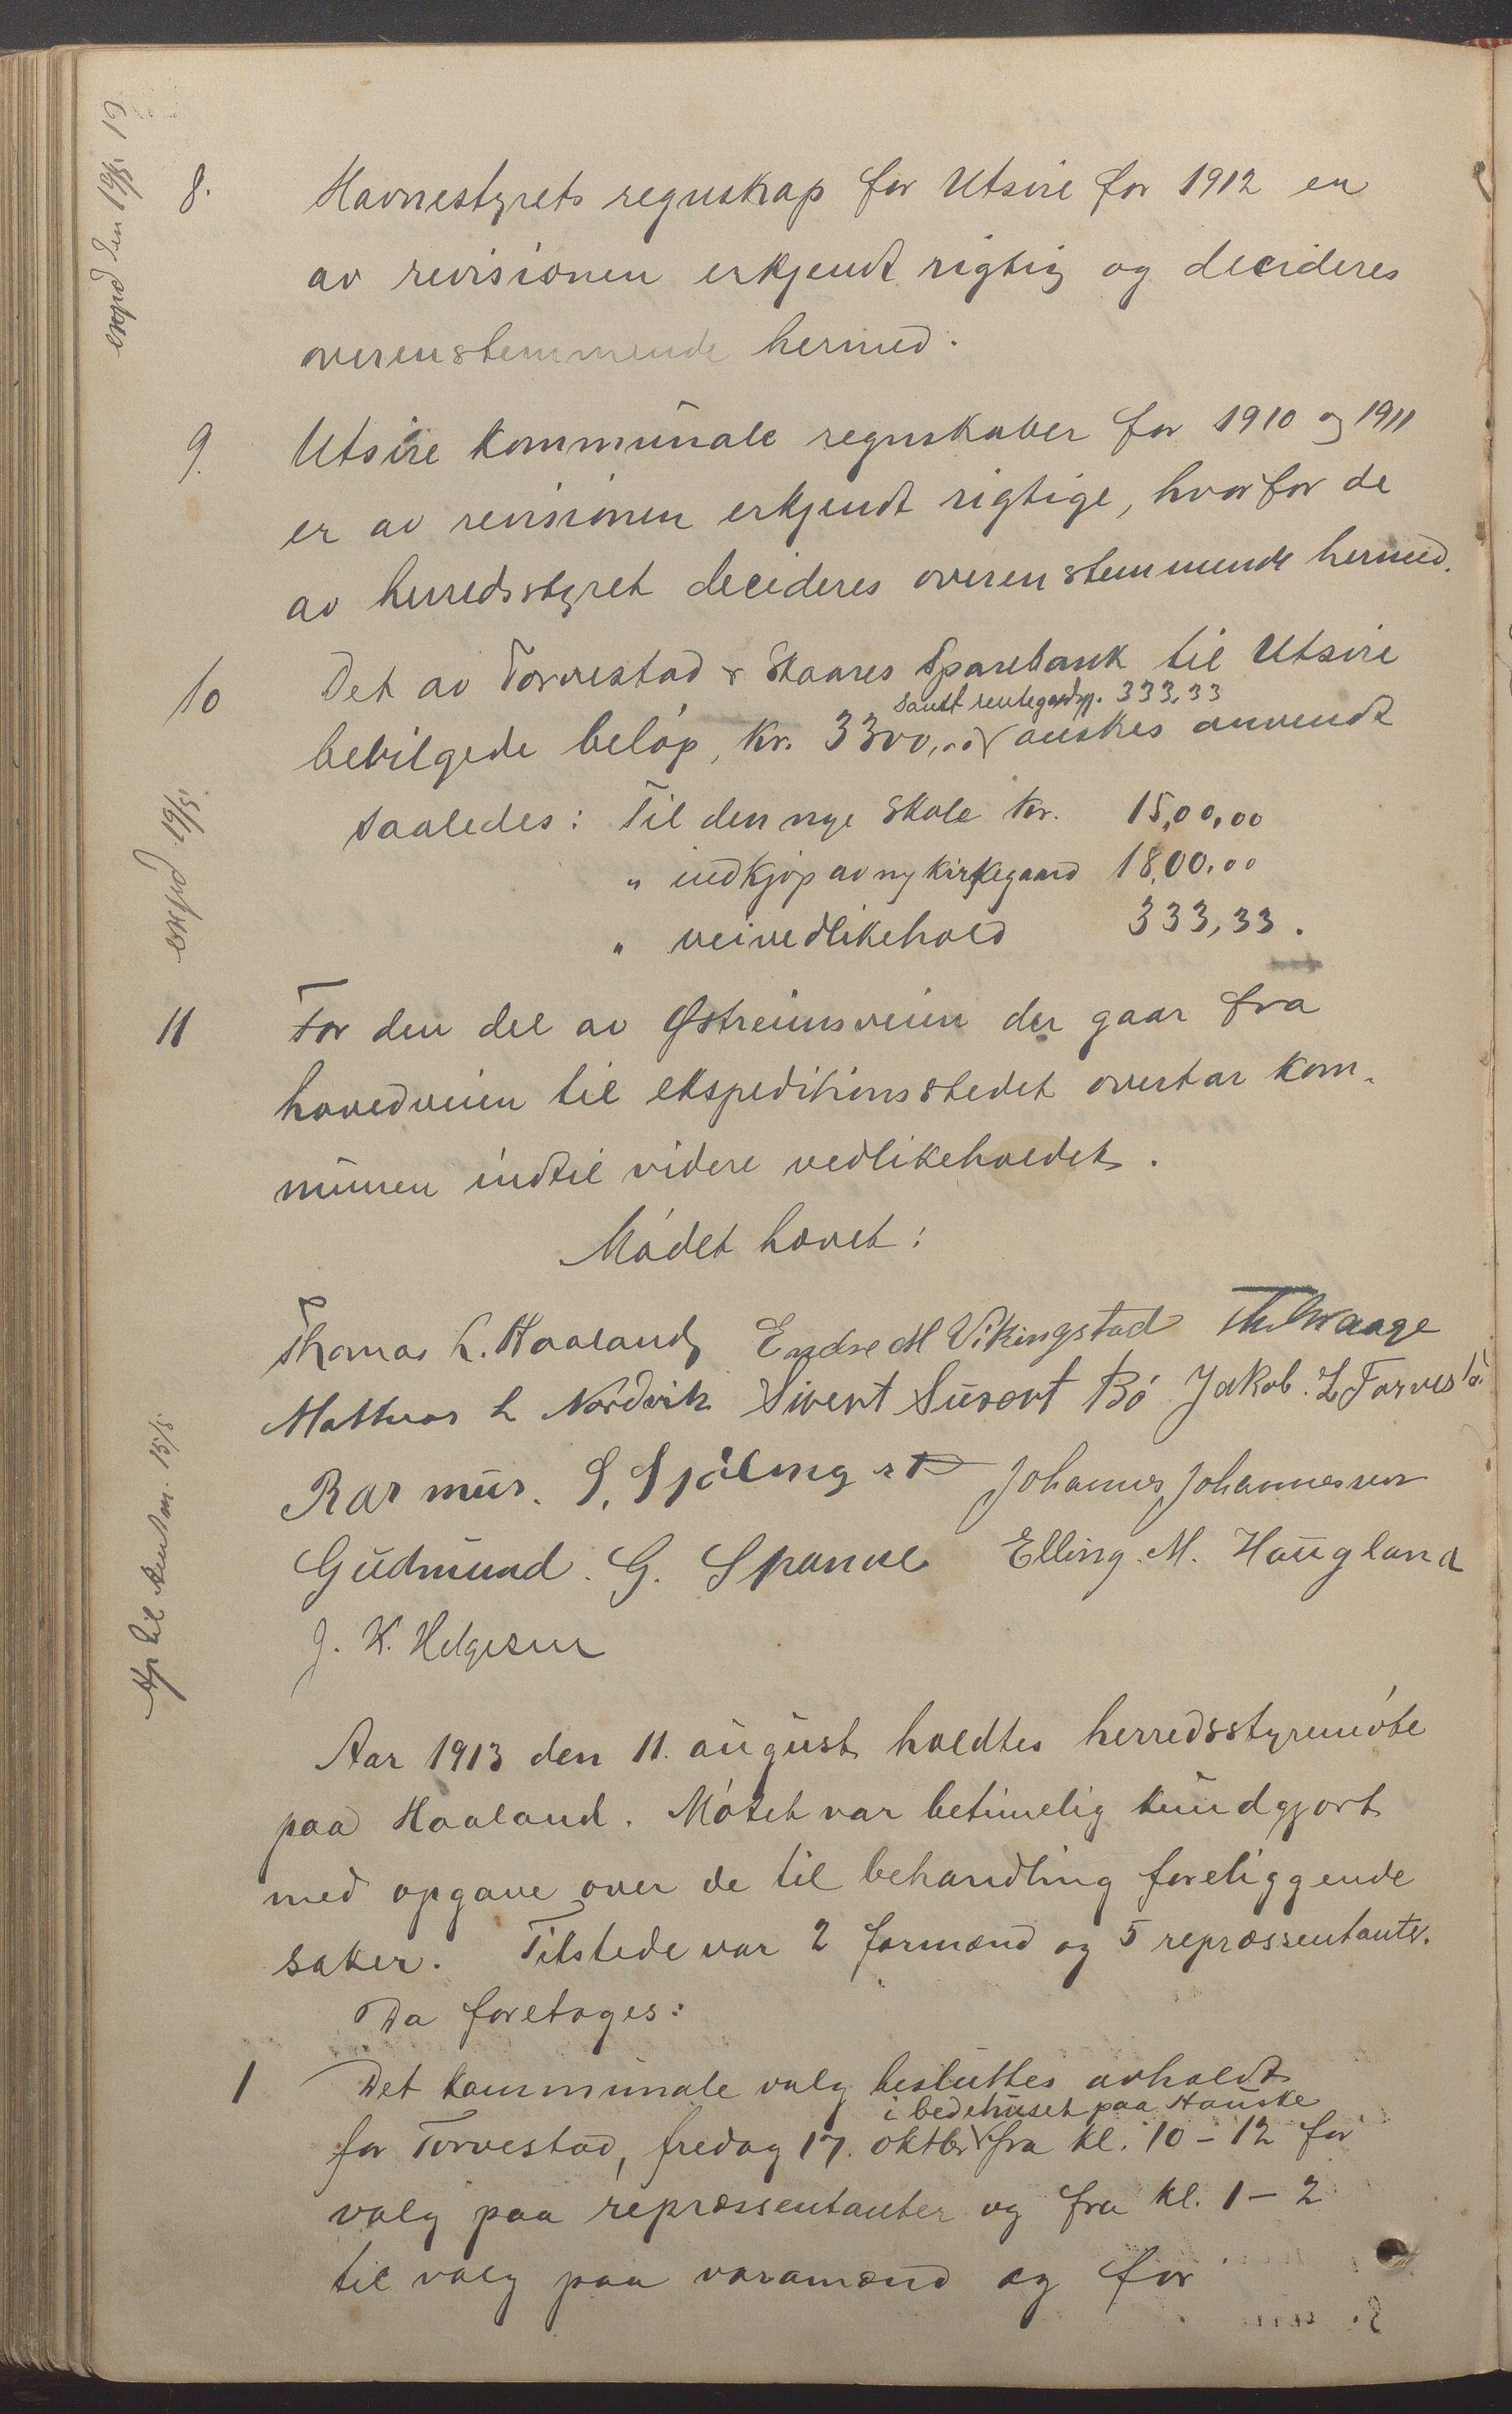 8. Havnestyrets regnskap for Utsire for 1912 er
av revisionen erkjendt rigtig og decideres
overenstemmende hermed.
9. Utsire kommunale regnskaber for 1910 og 1911
er av revisionen erkjendt rigtige, hvorfor de
av herredsstyret decideres overenstemmende hermed.
10 Det av Torvestad & Skaares Sparebank til Utsire
samt rentegodtgj. 333,33
bevilgede beløp, kr. 3300,00 ønskes anvendt
saaledes: Til den nye skole kr. 15,00,00
" indkjøp av ny kirkegaard 18,00,00
" veivedlikehold 333,33.
11 For den del av Østreimsveien der gaar fra
hovedveien til ekspeditionsstedet overtar kom-
munen indtil videre vedlikeholdet.
Mødet hævet:
Thomas L. Haaland Endre M Vikingstad Waage
Mathias L Nordvik Sivert Susort Bø Jakob. L Torvestå
Rasmus. S.
Johannes Johannessen
Gudmund. G. Spanne Elling. M. Haugland
J. K. Helgesen
Aar 1913 den 11. august holdtes herredsstyremøte
paa Haaland. Møtet var betimelig kundgjort
med opgave over de til behandling foreliggende
saker. Tilstede var 2 formænd og 5 repræssentanter.
Da foretoges:
1 Det kommunale valg besluttes avholdt
i bedehuset paa Hauske
for Torvestad, fredag 17. oktbr fra kl. 10-12 for
valg paa repræssentanter og fra kl. 1-2
til valg paa varamænd og for
exped den 19/5 13
exped 19/5
til 15/5